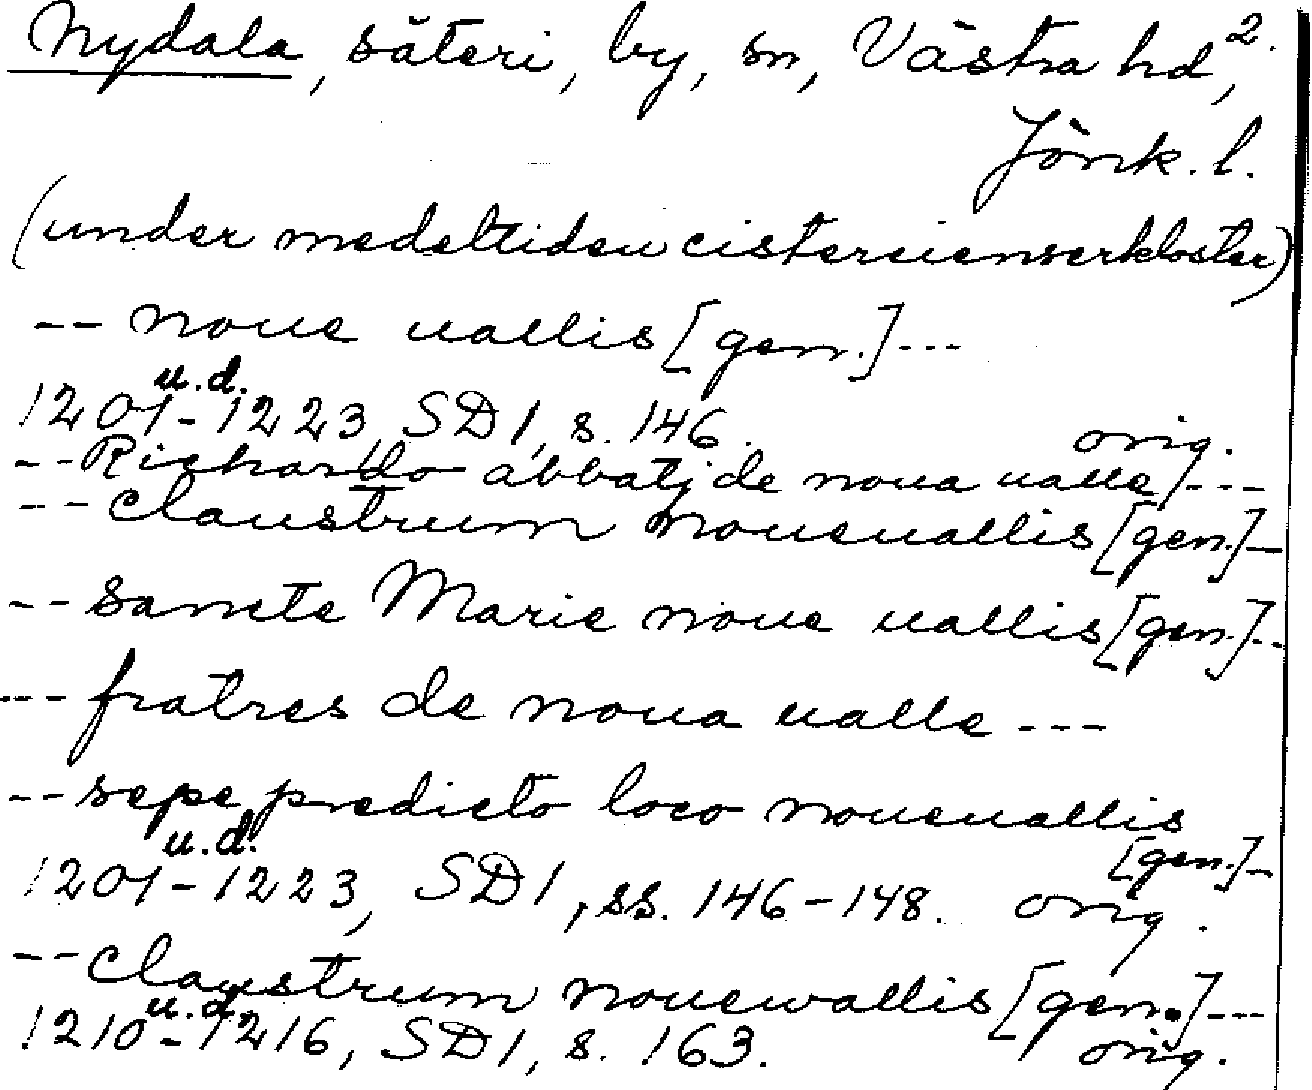 Nydala, säteri, by, sn, Västra hd 2.,
Jönk. l.
(under medeltiden cistercienserkloster)
-- noue uallis [gen.] ---
u.d.
1201-1223, SD 1, s. 146. orig.
-- Richardo abbatj de noua ualle ---
-- Claustrum noueuallis [gen.] --
-- sancte Marie noue uallis [gen.] --
--- fratres de noua ualle ---
-- sepe predicto loco noueuallis
[gen.] --
u.d.
1201-1223, SD 1, ss. 146-148. orig.
-- Claustrum nouewallis [gen.] ---
u.d.
1210-1216, SD 1, s. 163. orig.